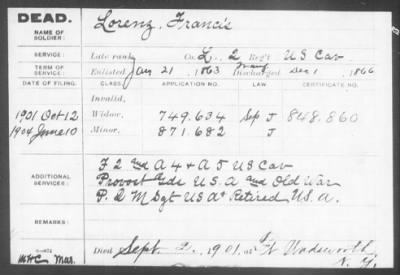 DEAD.
NAME OF SOLDIER: Lorenz, Francis
SERVICE: Late rank, Co. L, 2 Reg't US Cav
TERM OF SERVICE: Enlisted Jan 21, 1863 Discharged Dec 1, 1866
DATE OF FILING. CLASS. APPLICATION NO. LAW CERTIFICATE NO.
Invalid,
1901 Oct 12 Widow, 749.634 Sep J 848.860
1904 June 10 Minor, 871.682 J
ADDITIONAL SERVICES: F 2 and A 4 & A 5 US Cav
Provost Gds U.S.A and Ord War
P. Q M Sgt US A & Retired U.S. A.
REMARKS:
Died Sept 2, 1901, at Ft Wadsworth
N. Y.